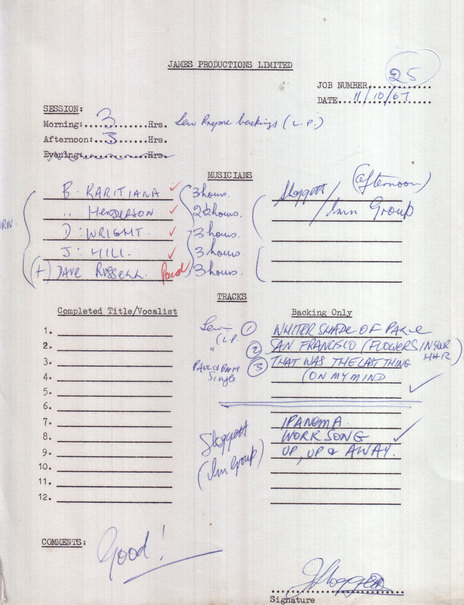 JAMES PRODUCTIONS LIMITED
25
JOB NUMBER
DATE 11/10/67
SESSION:
Morning: 3 Hrs. Lew Pryme backings (L.P.)
Afternoon: 3 Hrs.
Evening: Hrs.
MUSICIANS
B. RARITIANA ✓ 3 hours.
" HENDERSON ✓ 2½ hours.
D. WRIGHT ✓ 3 hours.
J. HILL. ✓ 3 hours.
(+) DAVE RUSSELL. Paid 3 hours.
(afternoon)
/Inn Group
TRACKS
Completed Title/Vocalist
Backing Only
1.
2.
3.
4.
5.
6.
7.
8.
9.
10.
11.
12.
Lew (L.P.
"
Single
① WHITER SHADE OF PALE
② SAN FRANCISCO (FLOWERS IN YOUR HAIR
③ THAT WAS THE LAST THING
(ON MY MIND
✓
(Inn Group)
IPANEMA
WORK SONG ✓
UP, UP & AWAY.
COMMENTS: Good!
Signature